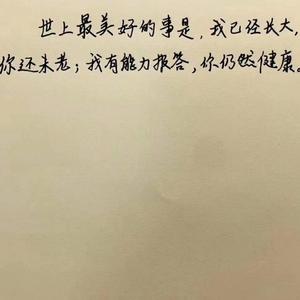 世上最美好的事是,我已经长大,
你还未老;我有能力报答,你仍然健康。